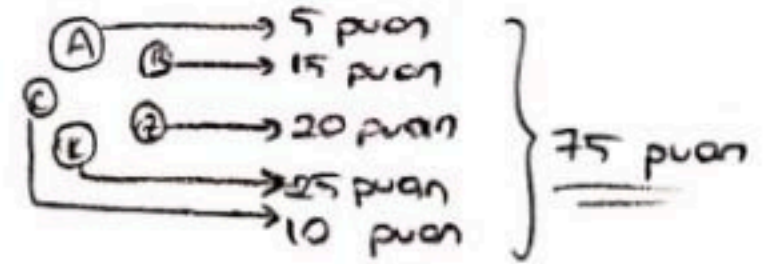 A → 5 puan
B → 15 puan
→ 20 puan
C
K → 25 puan
10 puan
75 puan